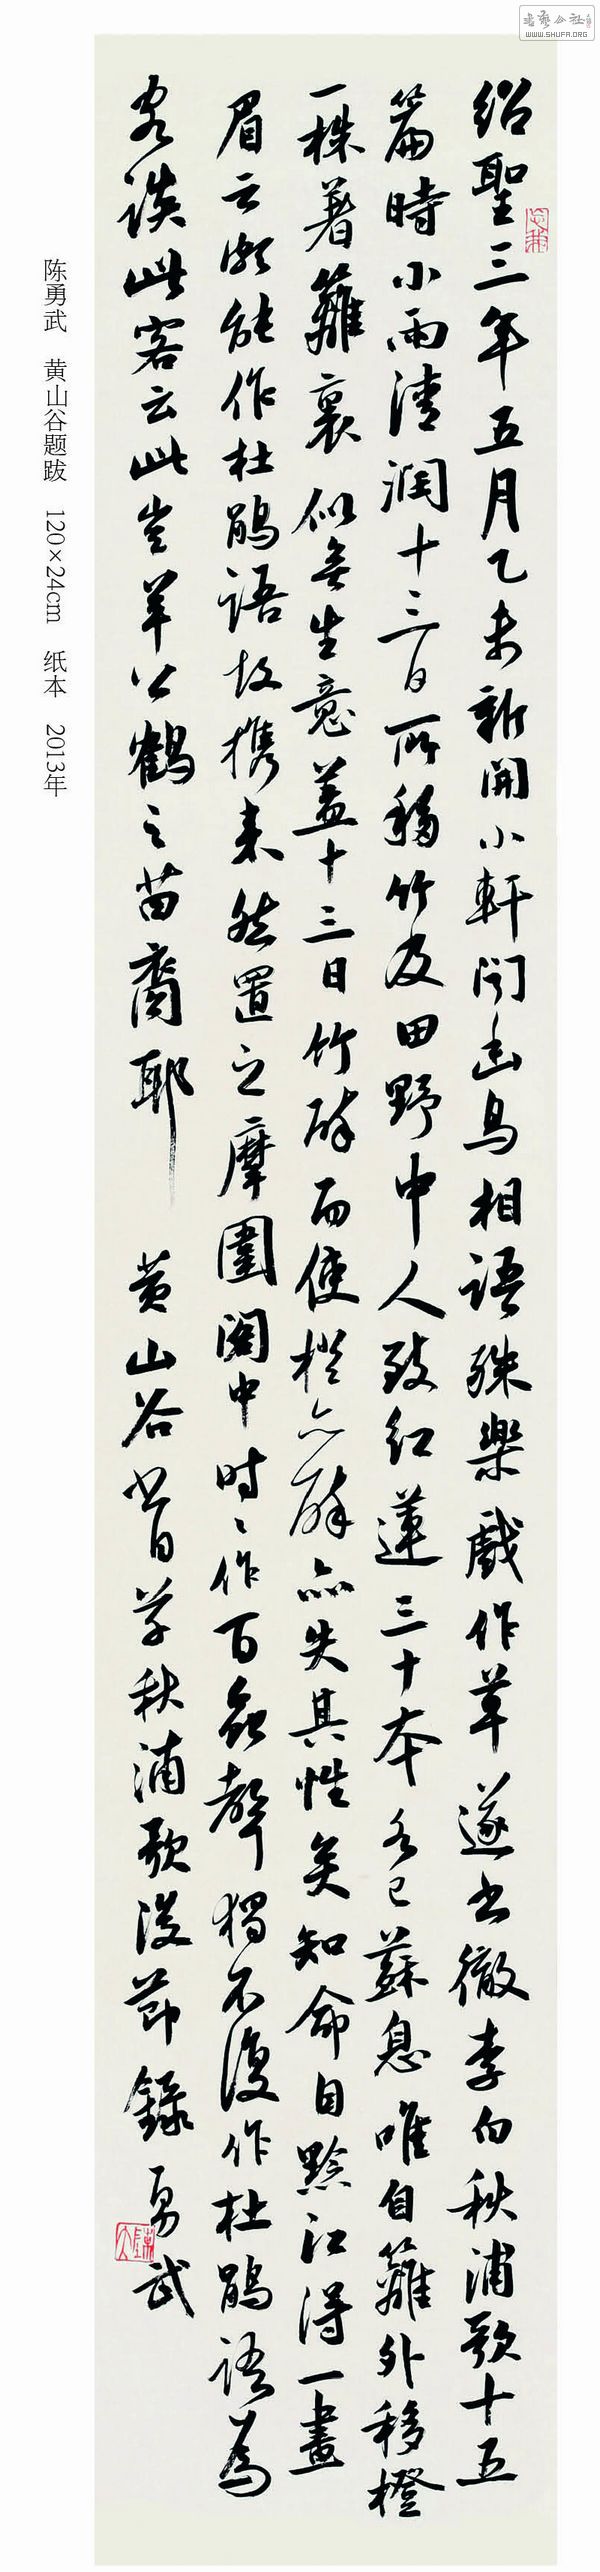 书艺公社
WWW.SHUFA.ORG
紹聖三年五月乙未新開小軒聞幽鳥相語殊樂戲作草遂書徹李白秋浦歌十五
篇時小雨清潤十三日所移竹及田野中人致紅蓮三十本各已蘇息唯自籬外移橙
一株著籬裏似無生意蓋十三日竹醉而使橙亦醉亦失其性矣知命自黔江得一畫
眉云頗能作杜鵑語故携来然置之摩圍閣中时時作百蟲聲獨不復作杜鵑語爲
客談此客云此豈羊公鶴之苗裔耶 黄山谷書草秋浦歌後節錄 勇武
陈勇武 黄山谷题跋 120×24cm 纸本 2013年